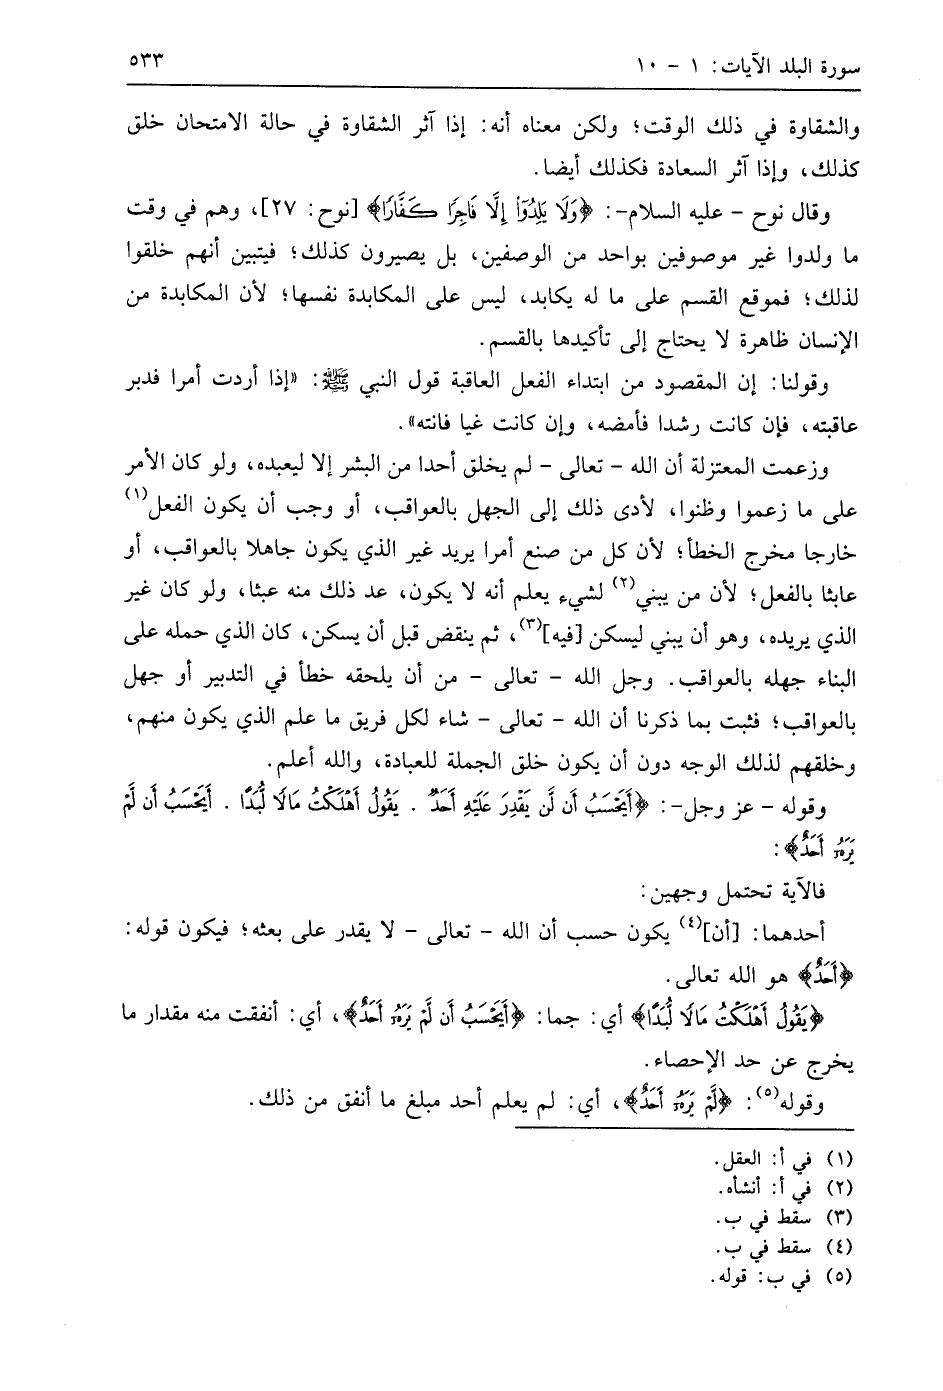 سورة البلد الآيات: ١ - ١٠
٥٣٣
والشقاوة في ذلك الوقت؛ ولكن معناه أنه: إذا آثر الشقاوة في حالة الامتحان خلق
كذلك، وإذا آثر السعادة فكذلك أيضا.
وقال نوح - عليه السلام-: ﴿وَلَا يَلِدُوٓا۟ إِلَّا فَاجِرًا كَفَّارًا﴾ [نوح: ٢٧]، وهم في وقت
ما ولدوا غير موصوفين بواحد من الوصفين، بل يصيرون كذلك؛ فيتبين أنهم خلقوا
لذلك؛ فموقع القسم على ما له يكابد، ليس على المكابدة نفسها؛ لأن المكابدة من
الإنسان ظاهرة لا يحتاج إلى تأكيدها بالقسم.
وقولنا: إن المقصود من ابتداء الفعل العاقبة قول النبي ﷺ: «إذا أردت أمرا فدبر
عاقبته، فإن كانت رشدا فأمضه، وإن كانت غيا فانته».
وزعمت المعتزلة أن الله - تعالى - لم يخلق أحدا من البشر إلا ليعبده، ولو كان الأمر
على ما زعموا وظنوا، لأدى ذلك إلى الجهل بالعواقب، أو وجب أن يكون الفعل(١)
خارجا مخرج الخطأ؛ لأن كل من صنع أمرا يريد غير الذي يكون جاهلا بالعواقب، أو
عابثا بالفعل؛ لأن من يبني(٢) لشيء يعلم أنه لا يكون، عد ذلك منه عبثا، ولو كان غير
الذي يريده، وهو أن يبني ليسكن [فيه](٣)، ثم ينقض قبل أن يسكن، كان الذي حمله على
البناء جهله بالعواقب. وجل الله - تعالى - من أن يلحقه خطأ في التدبير أو جهل
بالعواقب؛ فثبت بما ذكرنا أن الله - تعالى - شاء لكل فريق ما علم الذي يكون منهم،
وخلقهم لذلك الوجه دون أن يكون خلق الجملة للعبادة، والله أعلم.
وقوله - عز وجل-: ﴿أَيَحْسَبُ أَن لَّن يَقْدِرَ عَلَيْهِ أَحَدٌ . يَقُولُ أَهْلَكْتُ مَالًا لُّبَدًا . أَيَحْسَبُ أَن لَّمْ
يَرَهُۥٓ أَحَدٌ﴾:
فالآية تحتمل وجهين:
أحدهما: [أن](٤) يكون حسب أن الله - تعالى - لا يقدر على بعثه؛ فيكون قوله:
﴿أَحَدٌ﴾ هو الله تعالى.
﴿يَقُولُ أَهْلَكْتُ مَالًا لُّبَدًا﴾ أي: جما: ﴿أَيَحْسَبُ أَن لَّمْ يَرَهُۥٓ أَحَدٌ﴾، أي: أنفقت منه مقدار ما
يخرج عن حد الإحصاء.
وقوله(٥): ﴿لَّمْ يَرَهُۥٓ أَحَدٌ﴾، أي: لم يعلم أحد مبلغ ما أنفق من ذلك.
(١) في أ: العقل.
(٢) في أ: أنشأه.
(٣) سقط في ب.
(٤) سقط في ب.
(٥) في ب: قوله.